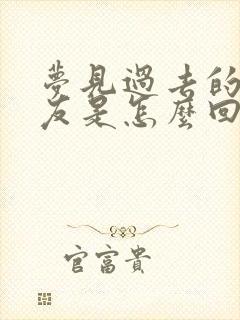 夢見過去的
友是怎麼回
官富貴